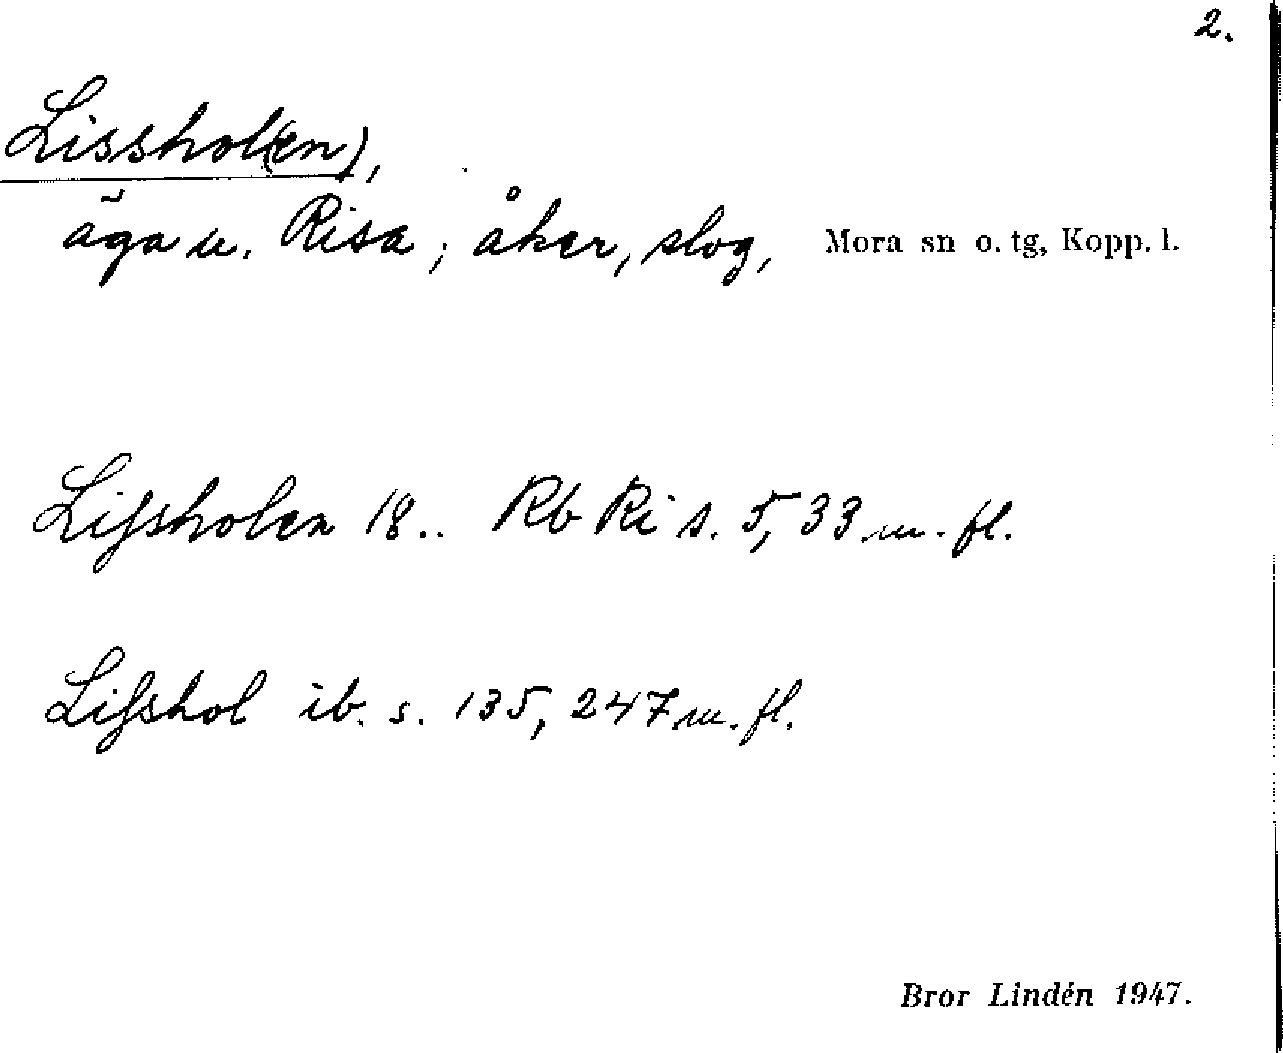 2.
Lisshol(en),
äga u. Risa; åker, slog, Mora sn o. tg, Kopp. l.
Liſsholen 18.. Rb Ri s. 5, 33 m. fl.
Liſshol ib. s. 135, 247 m. fl.
Bror Lindén 1947.